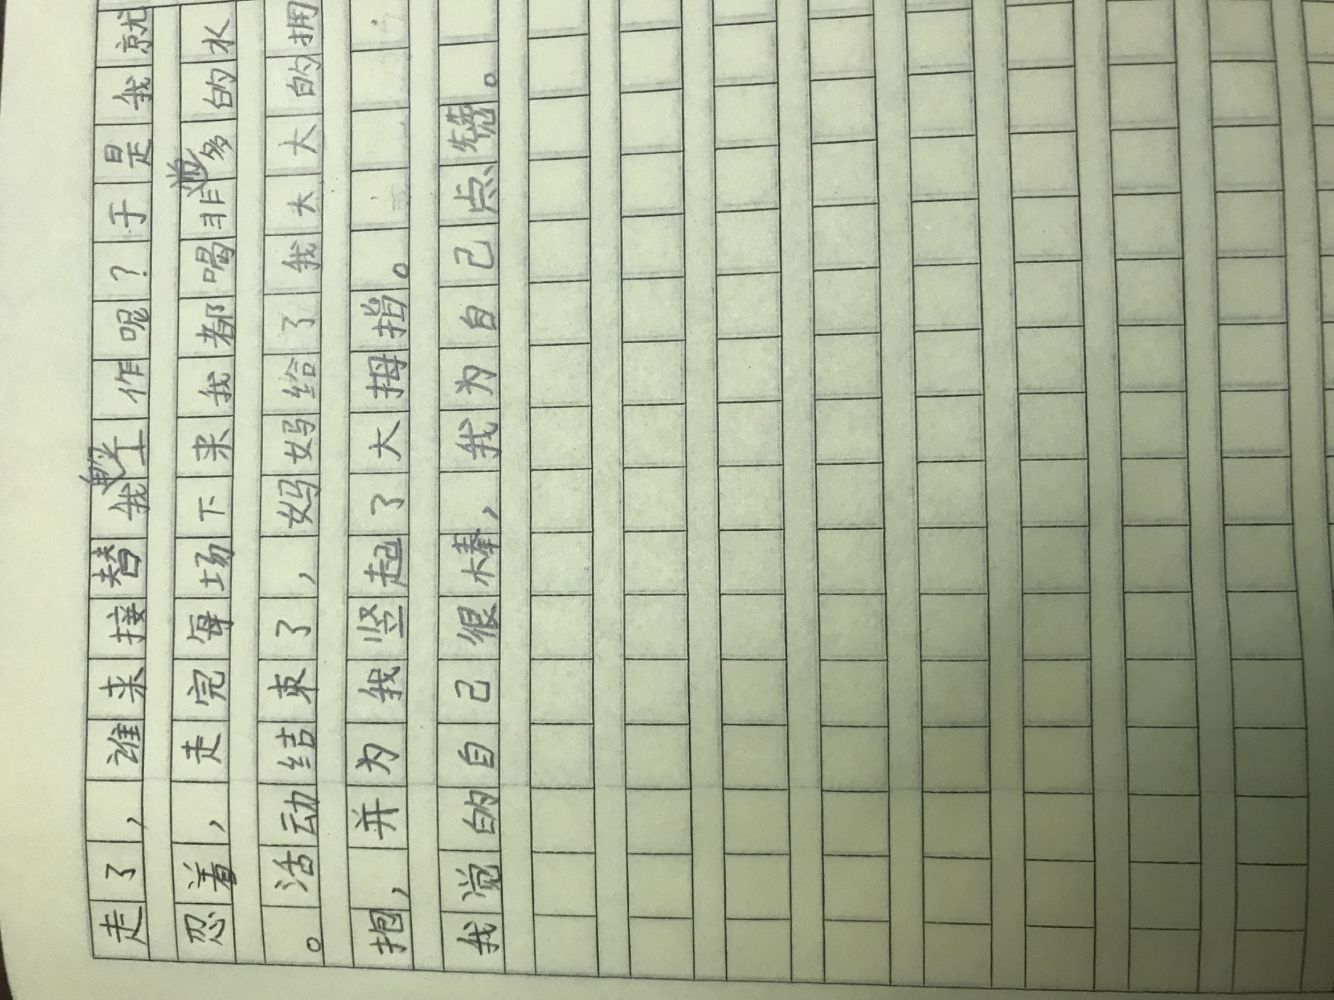 走了，谁来接替我的工作呢？于是我就
忍着，走完每场下来我都喝非常多的水
。活动结束了，妈妈给了我大大大的拥
抱，并为我竖起了大拇指。
我觉的自己很棒，我为自己点赞。